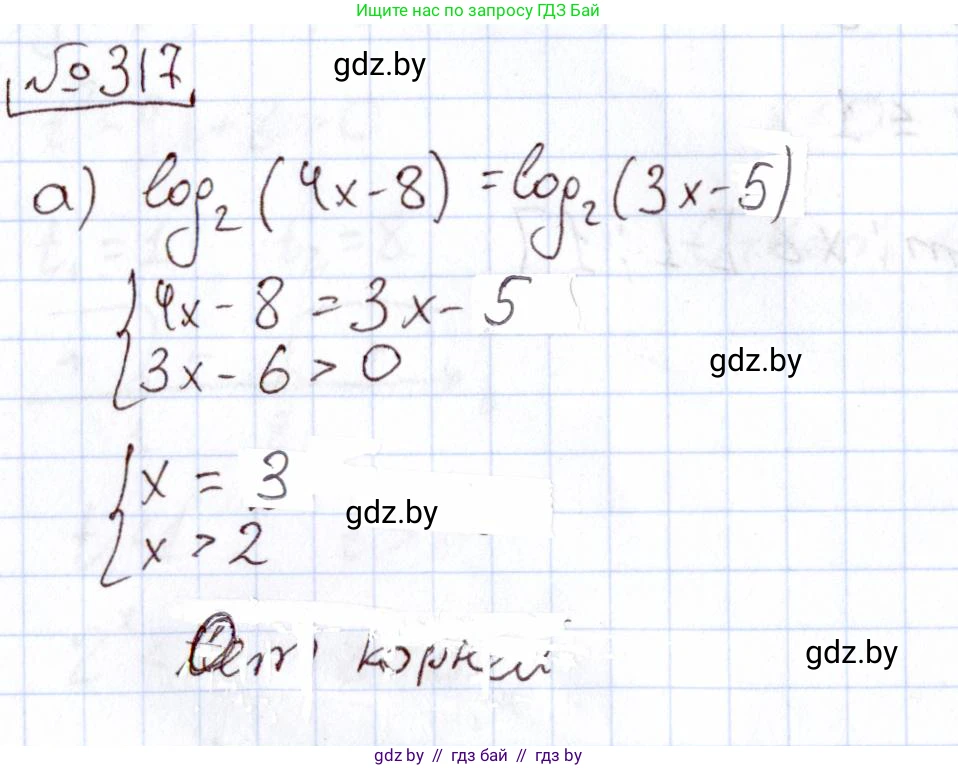 Ищите нас по запросу ГДЗ Бай
№317
gdz.by
а) log₂(4x-8) = log₂(3x-5)
4x - 8 = 3x - 5
3x - 6 > 0
gdz.by
x = 3
x > 2
gdz.by
корней
gdz.by
gdz.by // гдз бай // гдз by